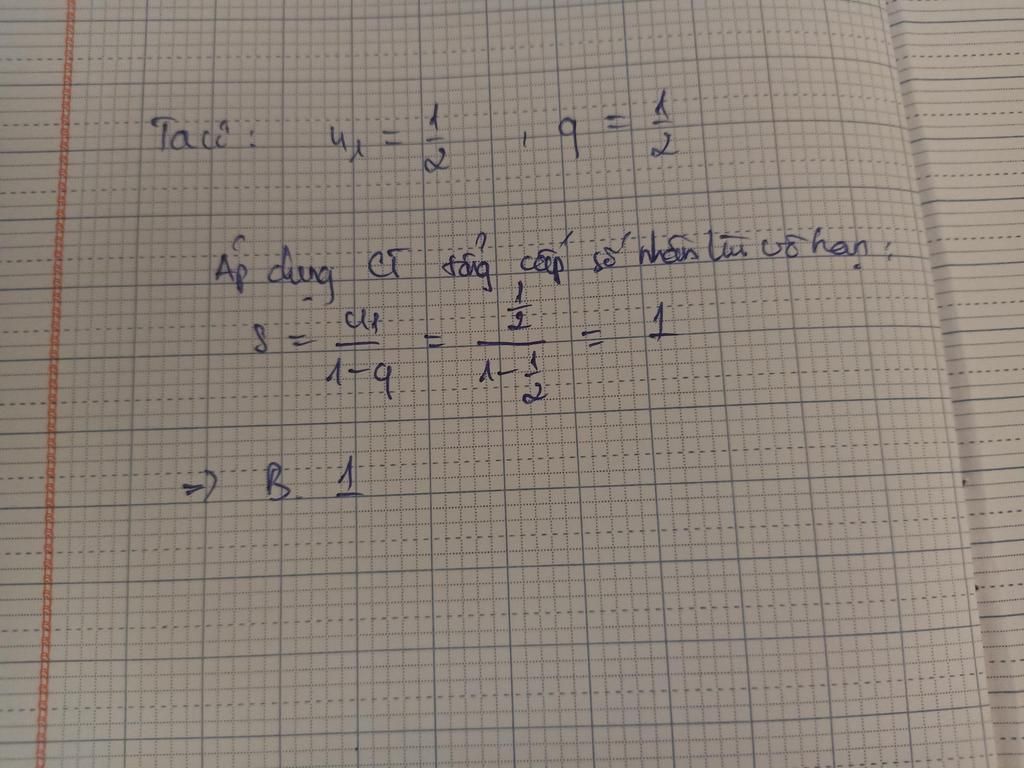 Ta có: u₁ = 1/2 , q = 1/2
Áp dụng CT tổng cấp số nhân lùi vô hạn:
S = u₁/(1-q) = (1/2)/(1-1/2) = 1
=> B. 1